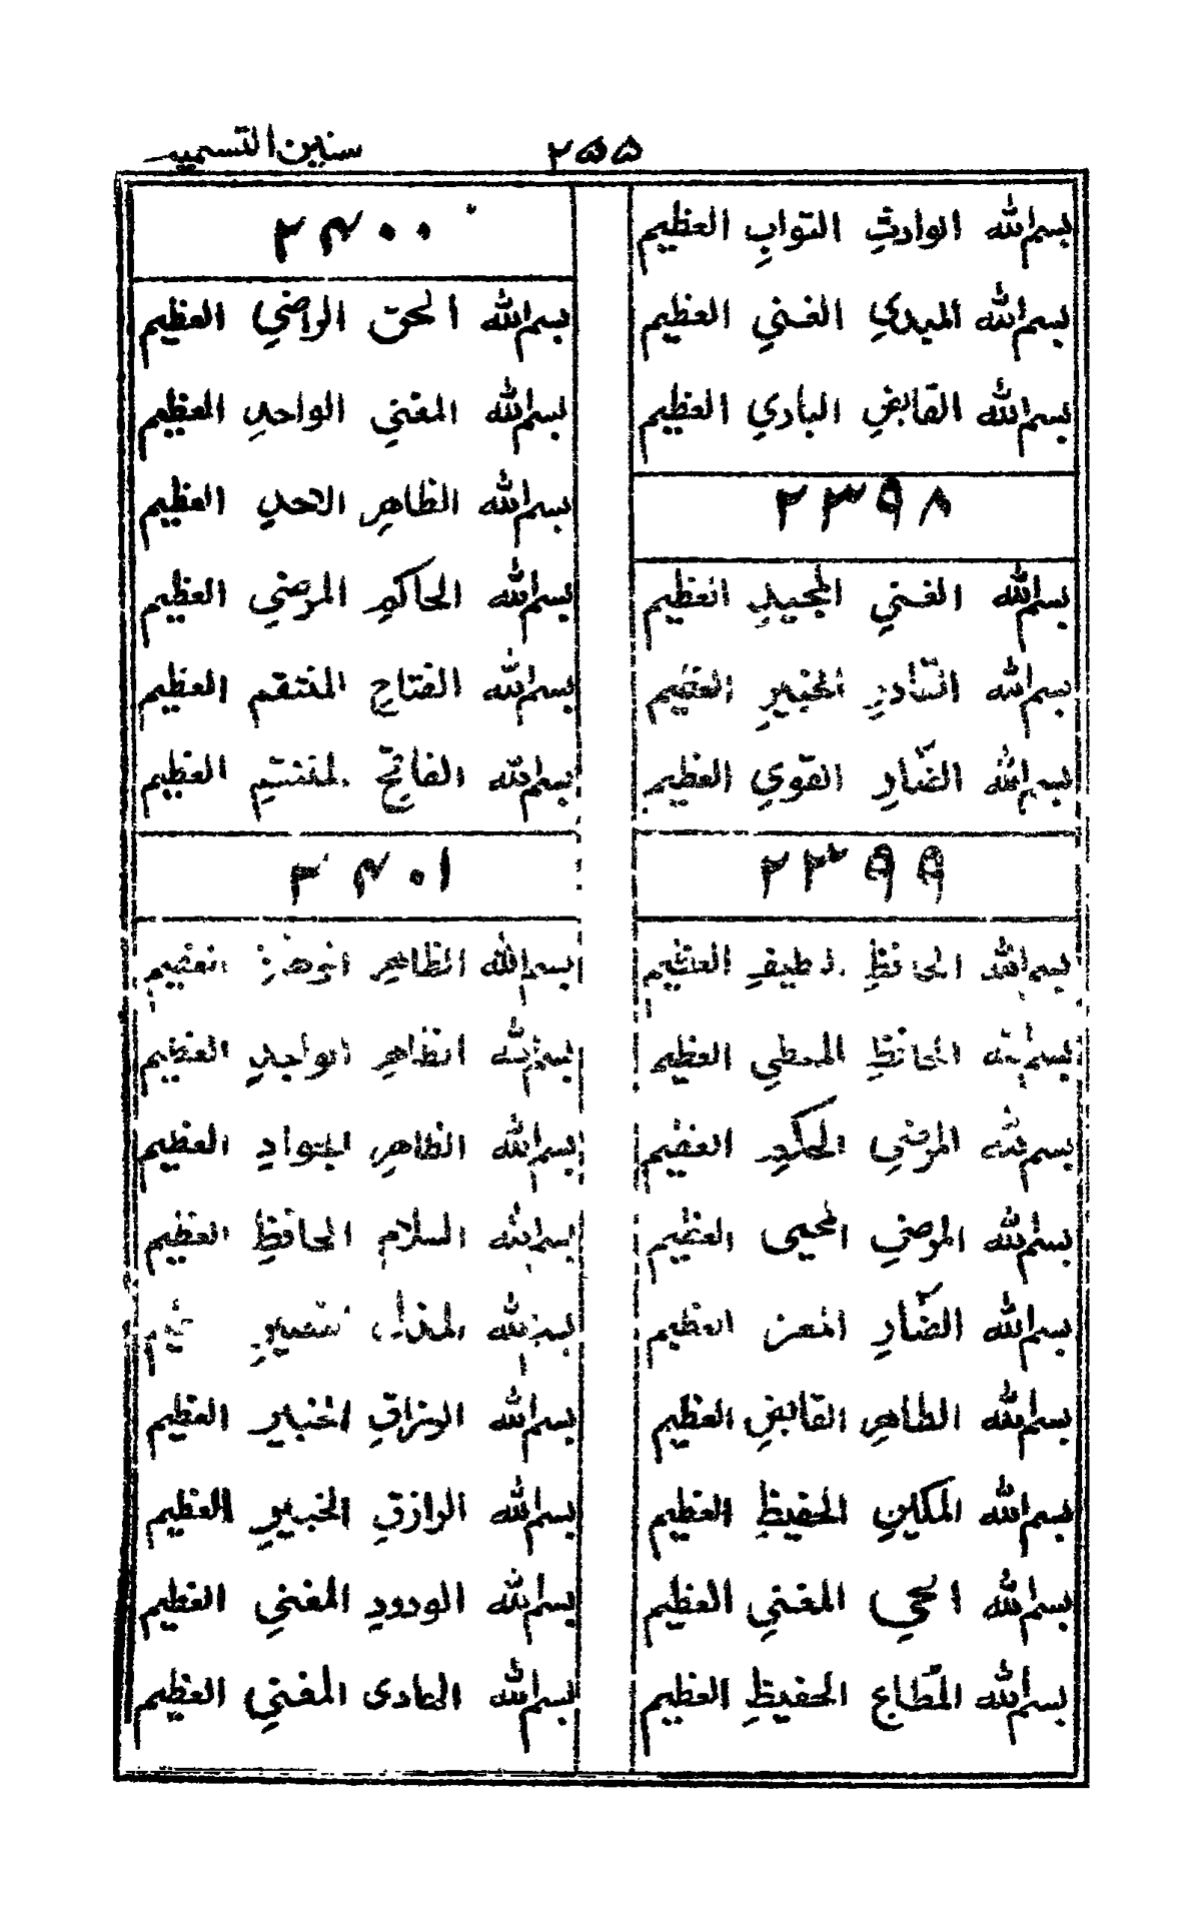 ۲۵۵
سنين التسميه
بسم الله الوارثِ التوابِ العظيم
بسم الله المبدئِ الغني العظيم
بسم الله القابضِ الباري العظيم
۲۳۹۸
بسم الله الغني المجيدِ العظيم
بسم الله القادرِ الخبيرِ العظيم
بسم الله الضّارِ القوي العظيم
۲۳۹۹
بسم الله الحافظِ لطيفِ العظيم
بسم الله الحافظِ المعطي العظيم
بسم الله المرضي الحكمِ العظيم
بسم الله المرضي المحيى العظيم
بسم الله الضّارِ المعز العظيم
بسم الله الطاهرِ القابضِ العظيم
بسم الله المكينِ الحفيظِ العظيم
بسم الله الحي المغني العظيم
بسم الله المطاعِ الحفيظِ العظيم
۲۴۰۰
بسم الله الحق الراضي العظيم
بسم الله المغني الواحدِ العظيم
بسم الله الظاهرِ الاحدِ العظيم
بسم الله الحاكمِ المرضي العظيم
بسم الله الفتاحِ المنتقم العظيم
بسم الله الفاتحِ المنتقمِ العظيم
۲۴۰۱
بسم الله الظاهرِ الوهابِ العظيم
بسم الله الظاهرِ الواجدِ العظيم
بسم الله الظاهرِ الجوادِ العظيم
بسم الله السلام الحافظِ العظيم
بسم الله المذل
بسم الله الرزاقِ الخبير العظيم
بسم الله الرازقِ الخبيرِ العظيم
بسم الله الودودِ المغني العظيم
بسم الله الهادى المغني العظيم